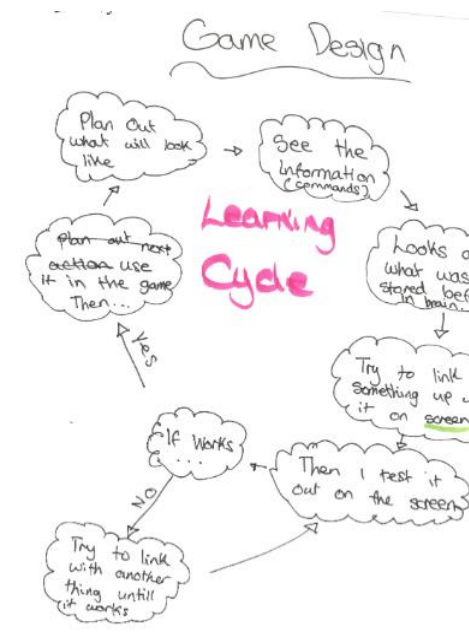 Game Design
Plan Out
what will look
like
See the
Information
(commands)
Learning
Cycle
Looks
what was
stored
in brain...
Try to link
Something up
it on screen
Then I test it
out on the screen
If Works
...
Yes
NO
Try to link
with another
thing untill
it works
Plan out next
action use
it in the game
Then...